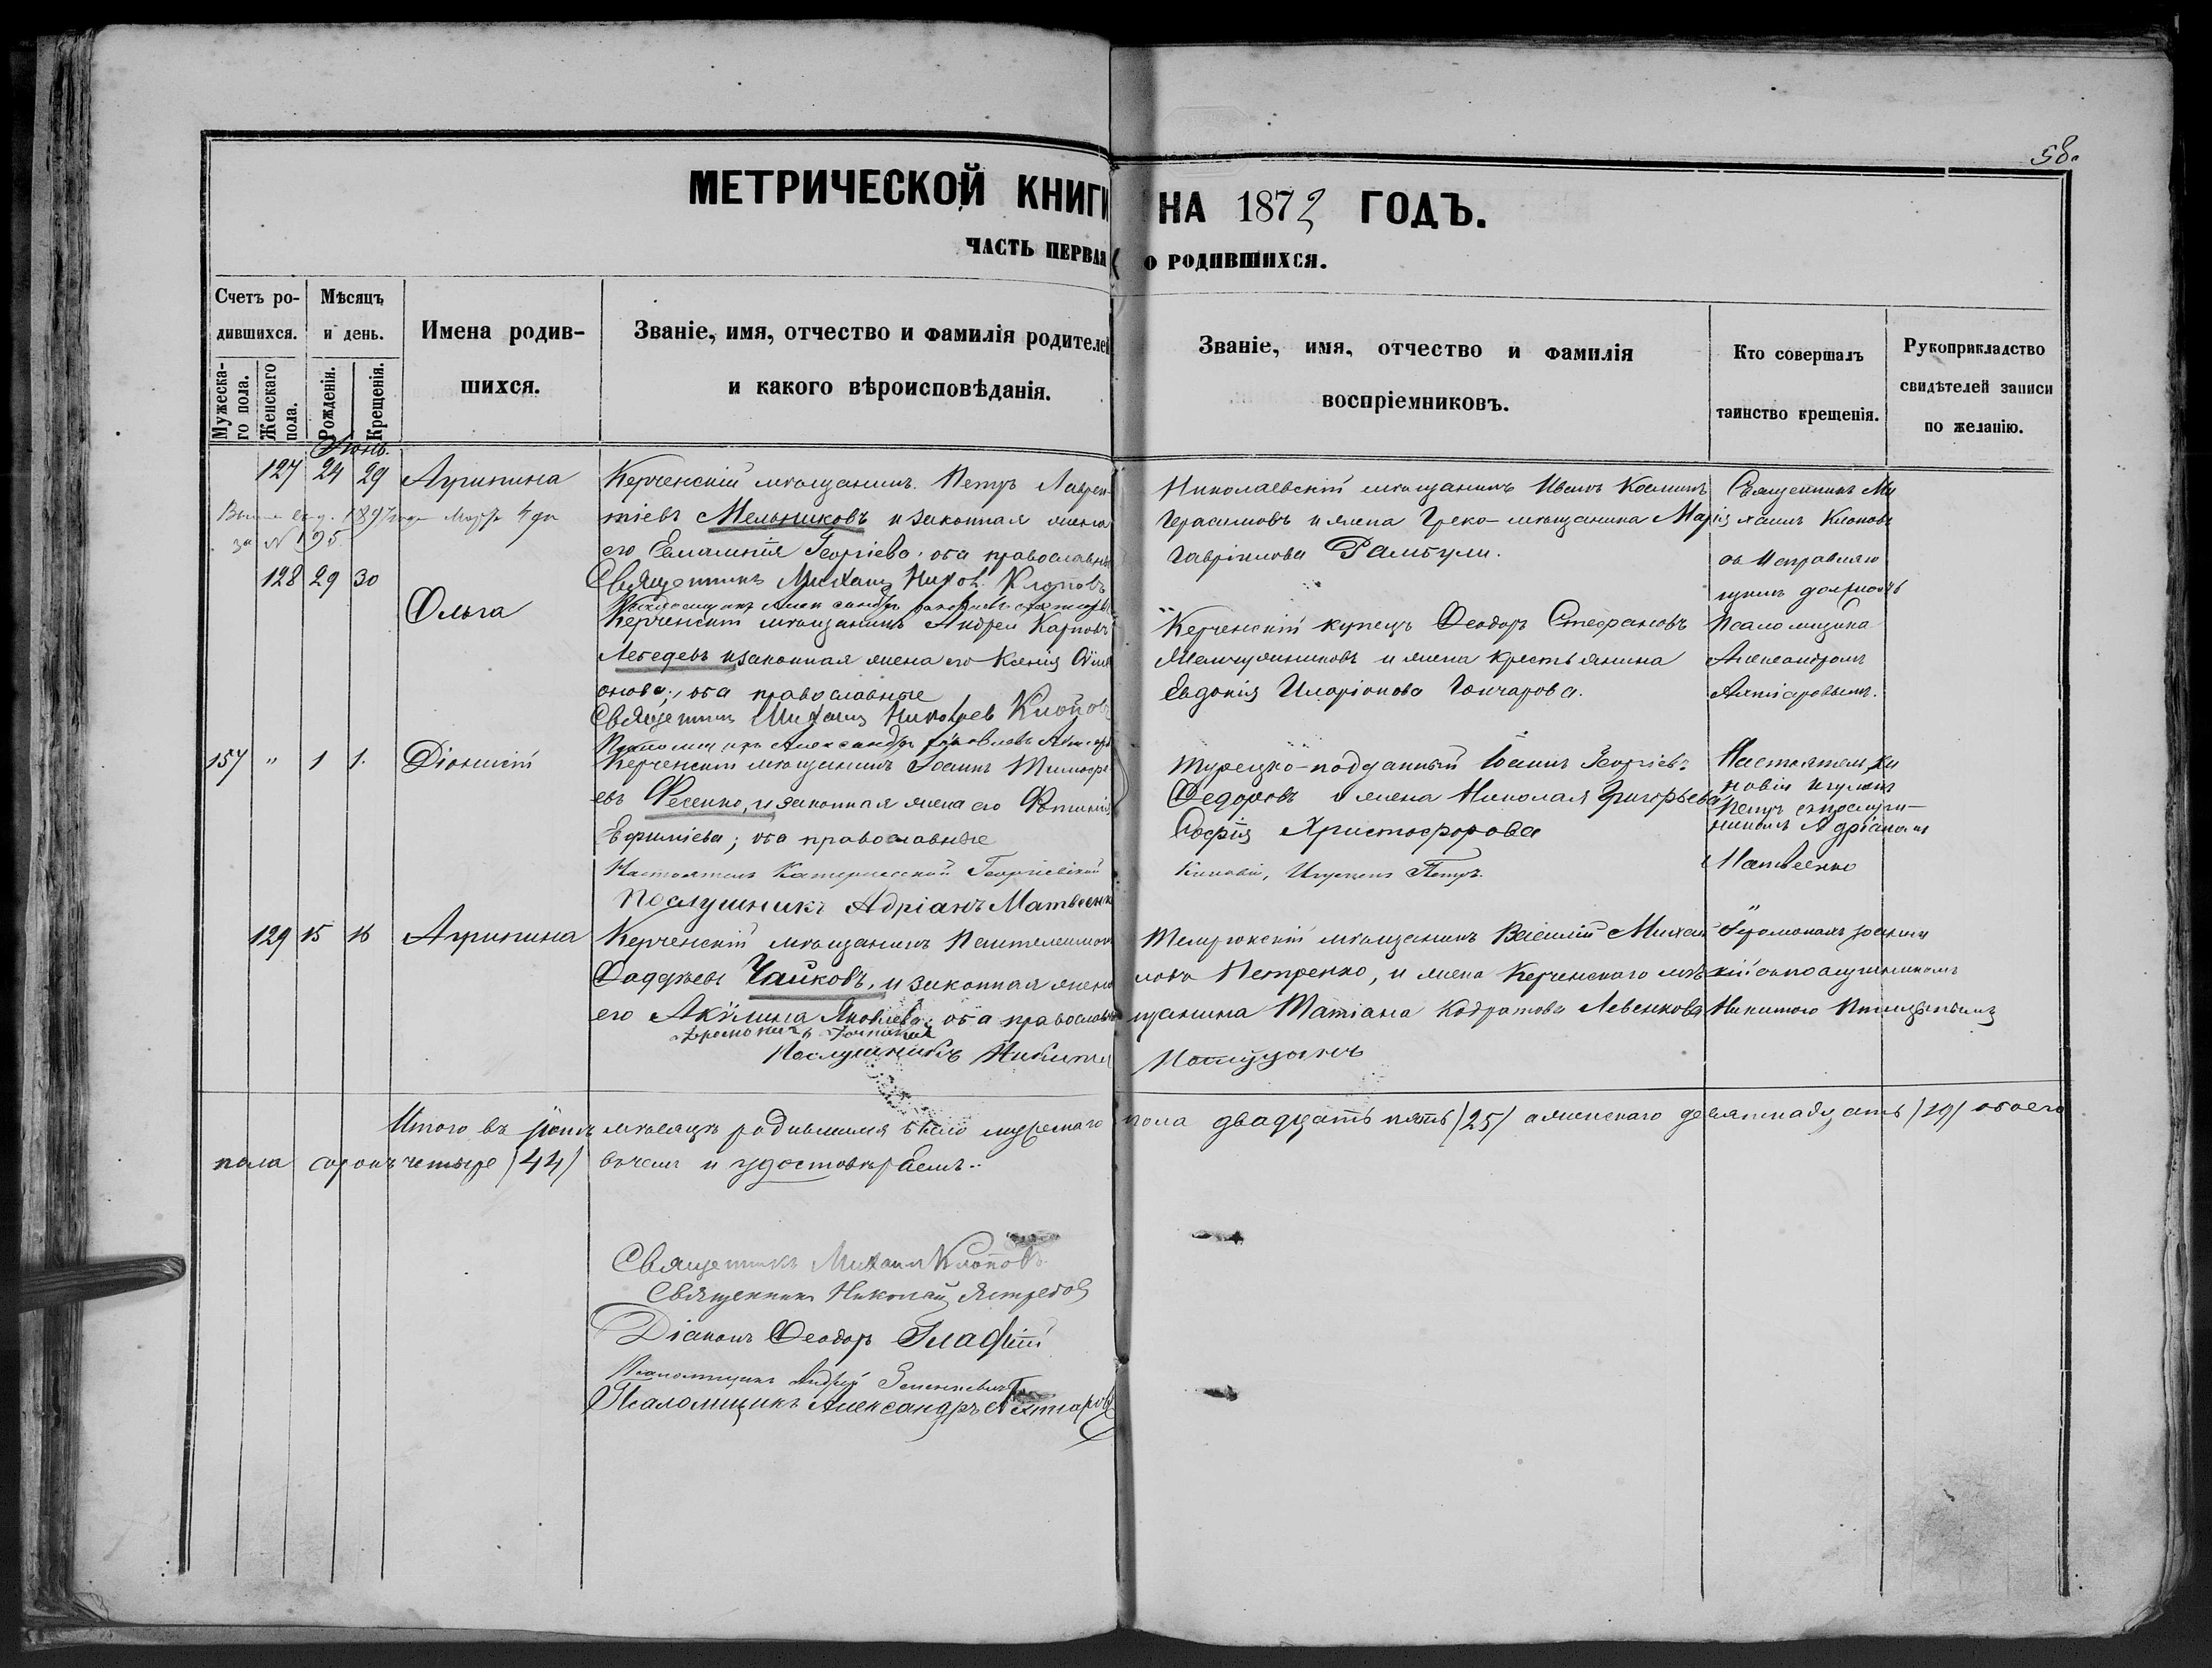 58.
МЕТРИЧЕСКОЙ КНИГИ НА 1872 ГОДЪ.
ЧАСТЬ ПЕРВАЯ О РОДИВШИХСЯ.
Счетъ родившихся.
Мужескаго пола.
Женскаго пола.
Мѣсяцъ и день.
Рожденія.
Крещенія.
Имена родившихся.
Званіе, имя, отчество и фамилія родителей
и какого вѣроисповѣданія.
Званіе, имя, отчество и фамилія
воспріемниковъ.
Кто совершалъ
таинство крещенія.
Рукоприкладство
свидѣтелей записи
по желанію.
Іюнь.
127 24 29 Агрипина
за № 195
Керченскій мѣщанинъ Петръ Лаврен-
тіевъ Мельниковъ и законная жена
его Евлампія Георгіева, оба православные
Священникъ Михаилъ Клоповъ
Николаевскій мѣщанинъ Иванъ Козминъ
Герасимовъ и жена Греко-мѣщанина Марія
Гавріилова Рамбули.
Священникъ Ми
хаилъ Клоповъ
съ Исправляю
щимъ должность
Псаломщика
Александромъ
Ахтіаровымъ.
128 29 30 Ольга
Керченскій мѣщанинъ Андрей Карповъ
Лебедевъ и законная жена его Ксенія
онова, оба православные
Священникъ Михаилъ Клоповъ
Псаломщикъ Александръ Яковлевъ
Керченскій купецъ Ѳеодоръ Стефановъ
и жена крестьянина
Евдокія Иларіонова Гончарова.
157 " 1 1. Діонисій
Керченскій мѣщанинъ Іоаннъ Тимофе
евъ Фесенко, и законная жена его Фотинія
Ефиміева; оба православные
Настоятель Катерлесской Георгіевской
Киновіи, Игуменъ Петръ.
Послушникъ Адріанъ Матвеенко
Турецко-подданный Іоаннъ Георгіевъ
Федоровъ и жена Николая Григорьева
Софія Христофорова
Настоятель Ки
новіи Игуменъ
Петръ съ послуш-
никомъ Адріаномъ
Матвеенко
129 15 16 Агрипина
Керченскій мѣщанинъ Пантелеимонъ
Фаддѣевъ Чайковъ, и законная жена
его Акилина Яковлева, оба православные
Послушникъ Никита
Темрюкскій мѣщанинъ Василій Михай
ловъ Петренко, и жена Керченскаго мѣ
щанина Татіана Кодратова Левенкова
Іеромонахъ Іоанни
кій съ послушникомъ
Никитою
Итого въ Іюнѣ мѣсяцѣ родившихся было мужескаго пола двадцать пять /25/ а женскаго девятнадцать /19/ обоего
пола сорокъ четыре /44/ въ чемъ и удостовѣряемъ.
Священникъ Михаилъ Клоповъ
Священникъ Николай Ястребов
Діаконъ Ѳеодоръ
Псаломщикъ Андрей
Псаломщикъ Александръ Ахтіаровъ